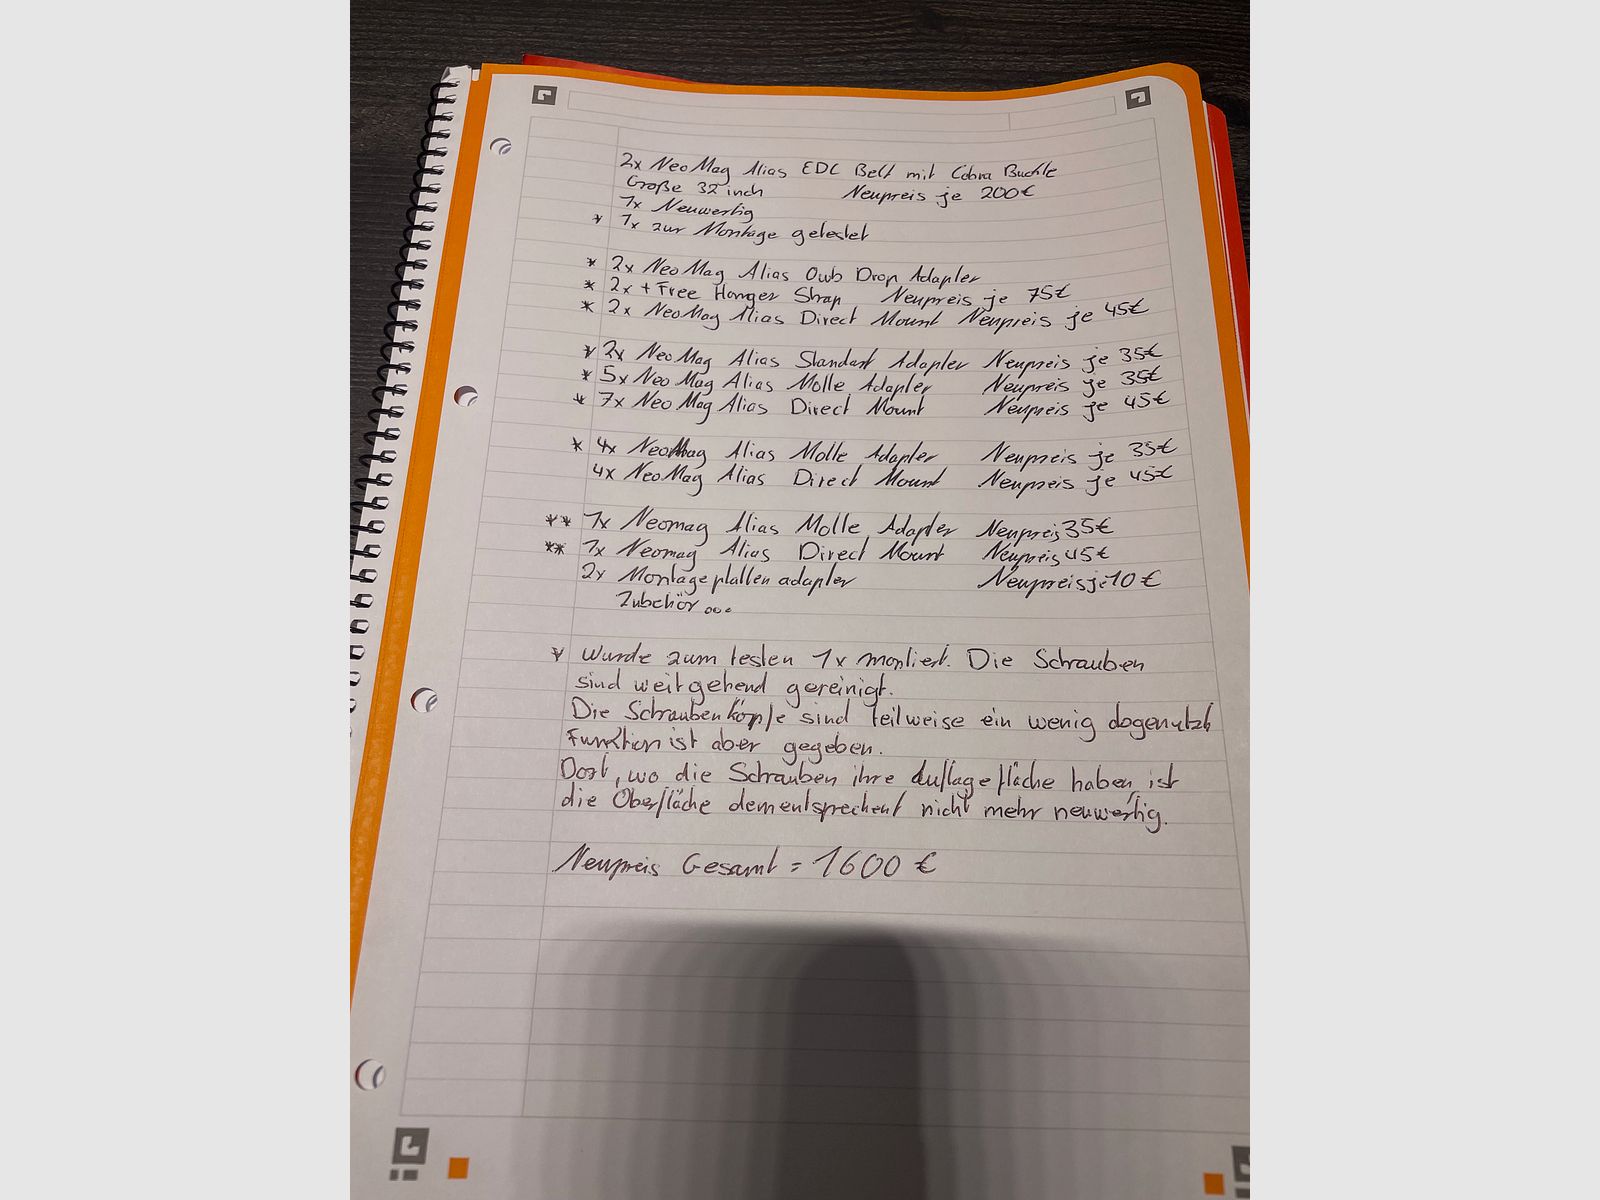 2x NeoMag Alias EDC Belt mit Cobra Buckle
Größe 32 inch Neupreis je 200€
1x Neuwertig
* 1x zur Montage getestet
* 2x NeoMag Alias Owb Drop Adapter
* 2x + Free Hanger Strap Neupreis je 75€
* 2x NeoMag Alias Direct Mount Neupreis je 45€
* 2x NeoMag Alias Standart Adapter Neupreis je 35€
* 5x NeoMag Alias Molle Adapter Neupreis je 35€
* 7x NeoMag Alias Direct Mount Neupreis je 45€
* 4x NeoMag Alias Molle Adapter Neupreis je 35€
4x NeoMag Alias Direct Mount Neupreis je 45€
** 1x Neomag Alias Molle Adapter Neupreis 35€
** 1x Neomag Alias Direct Mount Neupreis 45€
2x Montageplattenadapter Neupreis je 10€
Zubehör...
* Wurde zum testen 1x montiert. Die Schrauben
sind weitgehend gereinigt.
Die Schraubenköpfe sind teilweise ein wenig abgenutzt
Funktion ist aber gegeben.
Dort, wo die Schrauben ihre Auflagefläche haben, ist
die Oberfläche dementsprechent nicht mehr neuwertig.
Neupreis Gesamt = 1600 €